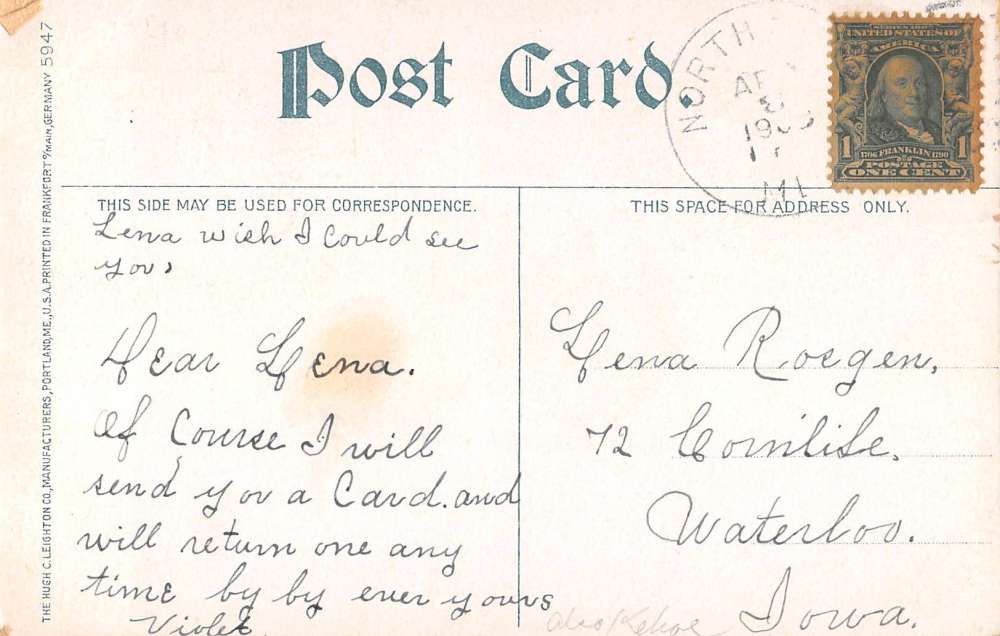 Post Card.
NORTH
1
SERIES 1902
UNITED STATES OF
AMERICA
1706 FRANKLIN 1790
POSTAGE
1 1
ONE CENT
THIS SIDE MAY BE USED FOR CORRESPONDENCE.
THIS SPACE FOR ADDRESS ONLY.
Lena wish I Could see
you,
Dear Lena.
Of Course I will
send you a Card. and
will return one any
time by by ever yours
Violet
Lena Rosgen,
72 Cornlise,
Waterloo.
Iowa.
THE HUGH C. LEIGHTON CO., MANUFACTURERS, PORTLAND, ME., U.S.A. PRINTED IN FRANKFORT o/MAIN, GERMANY 5947